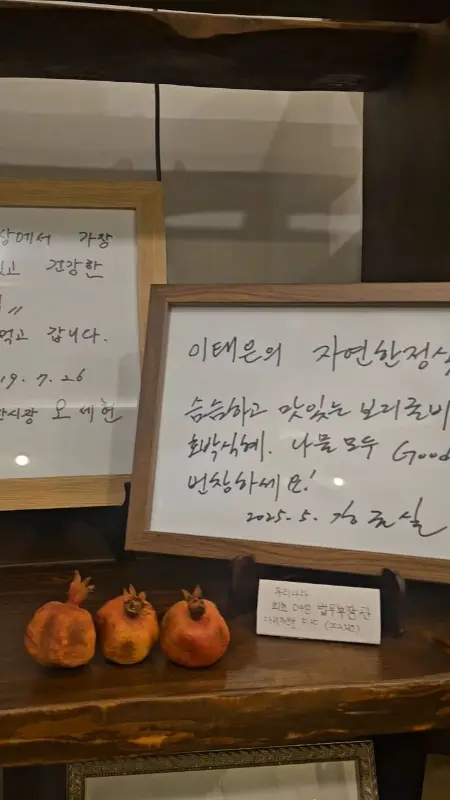 상에서 가장
있고 건강한
"
먹고 갑니다.
19. 7. 26
오세현
이태은의 자연한정식
슴슴하고 맛있는 보리굴비
호박식혜. 나물 모두 Good
번창하세요!
2025. 5. 강금실
우리나라
최초 여성 법무부장관